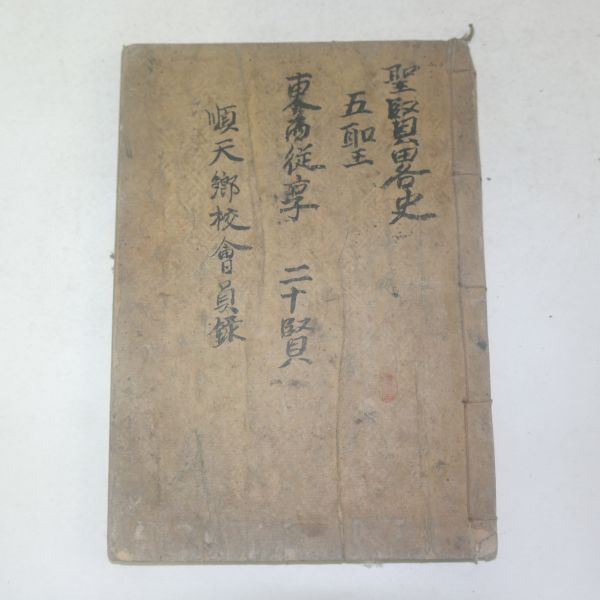 聖賢畧史
五聖
東西從享 二十賢
順天鄉校會員錄